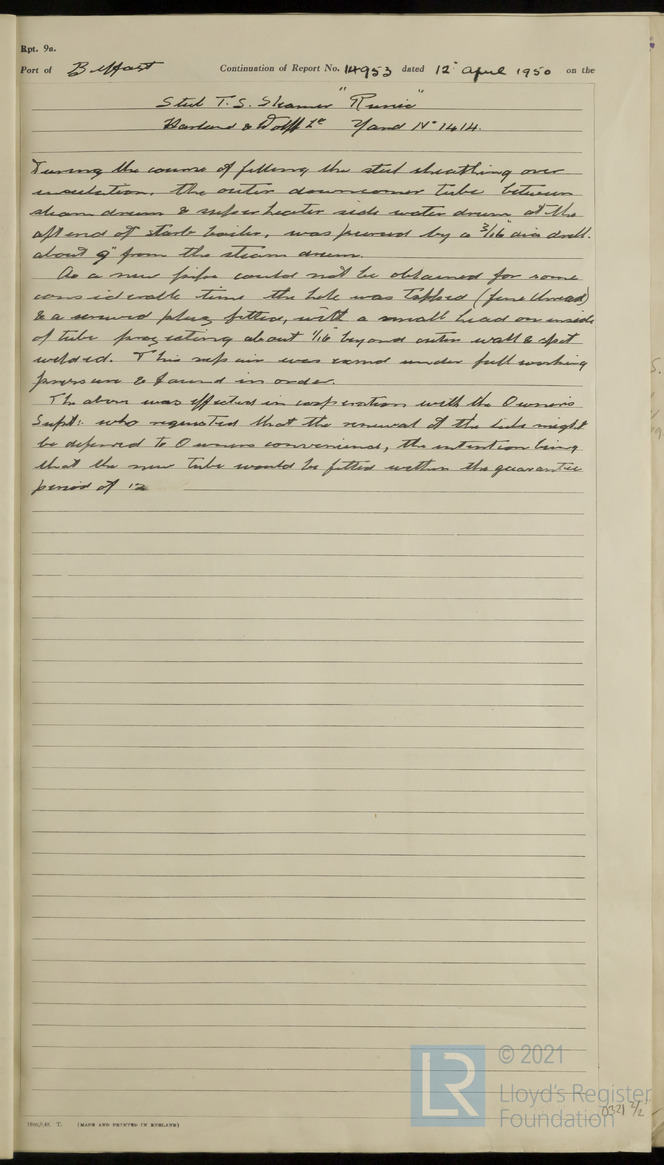 Rpt. 9a.
Port of Belfast Continuation of Report No. 14953 dated 12th April 1950 on the
Steel T.S. Steamer "Runic"
Harland & Wolff Ld Yard No 1414.
During the course of fitting the steel sheathing over
insulation, the outer downcomer tube between
steam drum & superheater side water drum at the
aft end of starbd boiler, was pierced by a 3/16" dia drill
about 9" from the steam drum.
As a new pipe could not be obtained for some
considerable time the hole was tapped (fine thread)
& a screwed plug fitted, with a small head on inside
of tube projecting about 1/16 beyond outer wall & spot
welded. This repair was examd under full working
pressure & found in order.
The above was effected in cooperation with the Owners
Supt: who requested that the renewal of the tube might
be deferred to Owners convenience, the intention being
that the new tube would be fitted within the guarantee
period of 12
(MADE AND PRINTED IN ENGLAND)
LR © 2021
Lloyd's Register
Foundation
0321 2/2